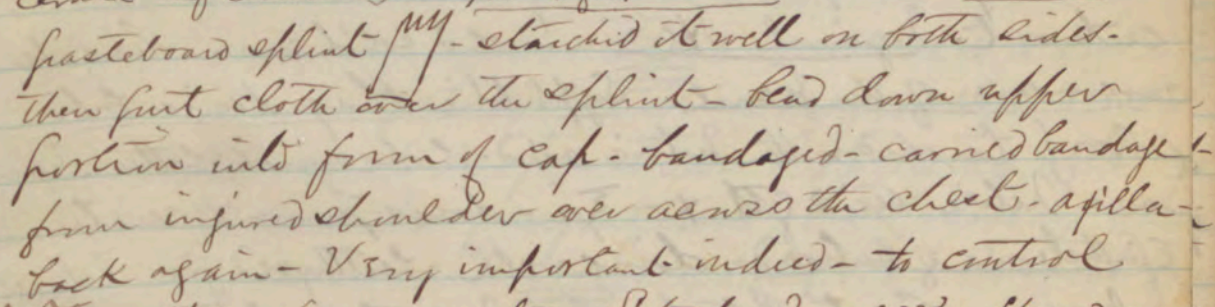 pasteboard splint - starched it well on both sides -
then put cloth over the splint - bend down upper
portion into form of cap - bandaged - carried bandage
from injured shoulder over across the chest - axilla -
back again - Very important indeed - to control